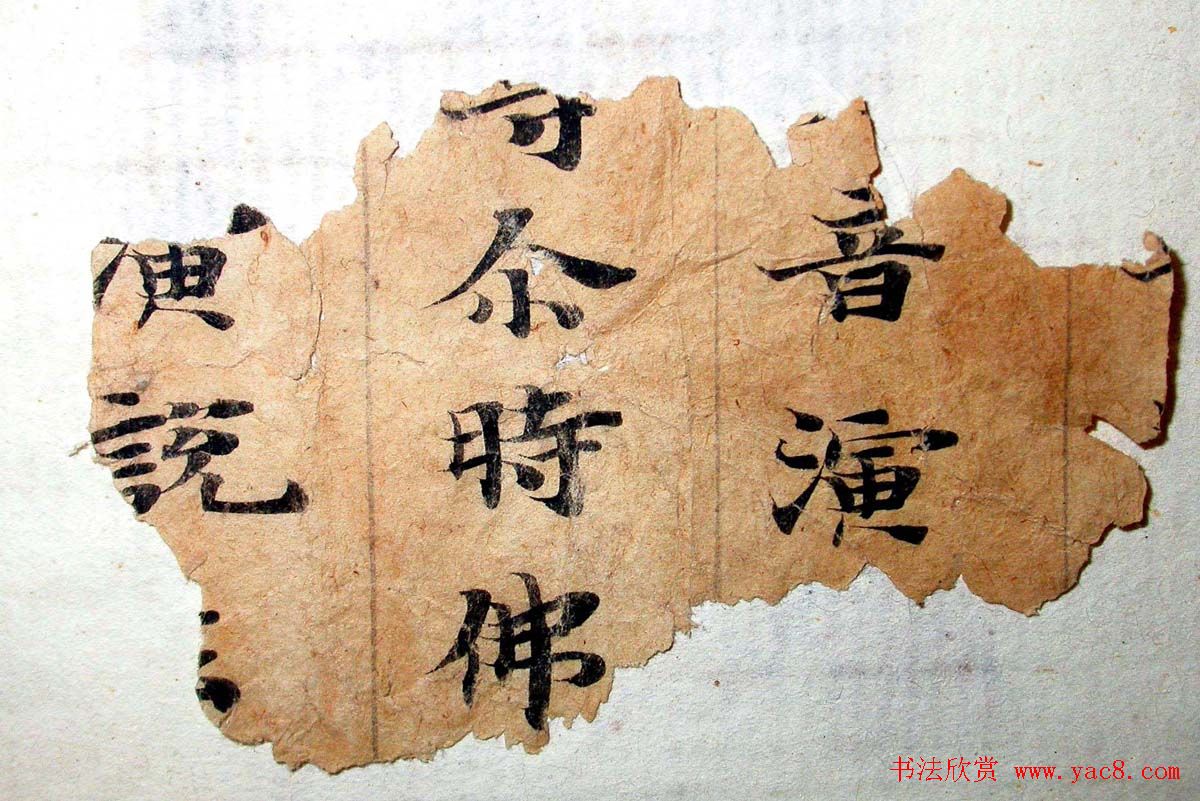 音演
尒時佛
便說
书法欣赏 www.yac8.com